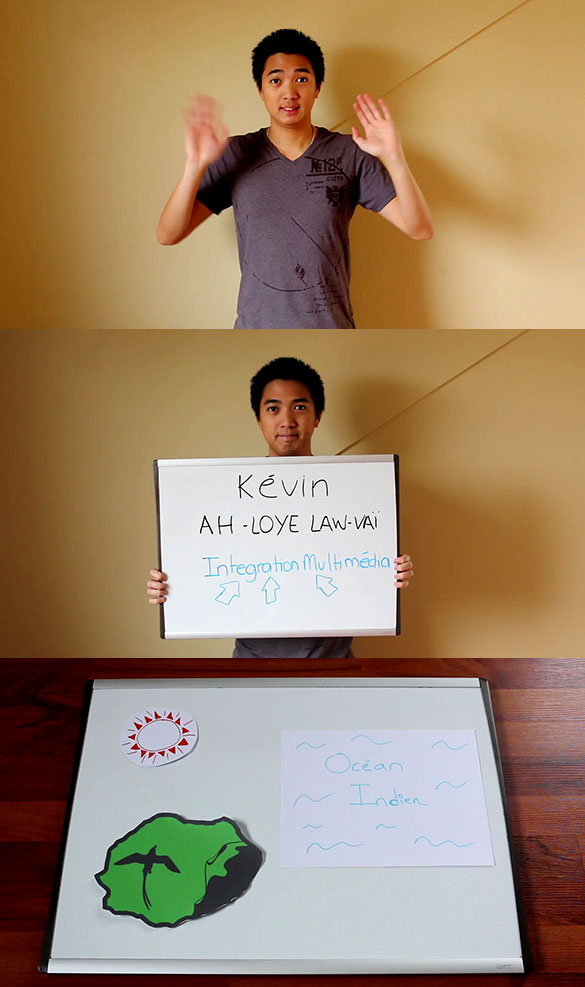 №12
Kévin
AH-LOYE LAW-VAÏ
Integration Multimédia
Océan
Indien